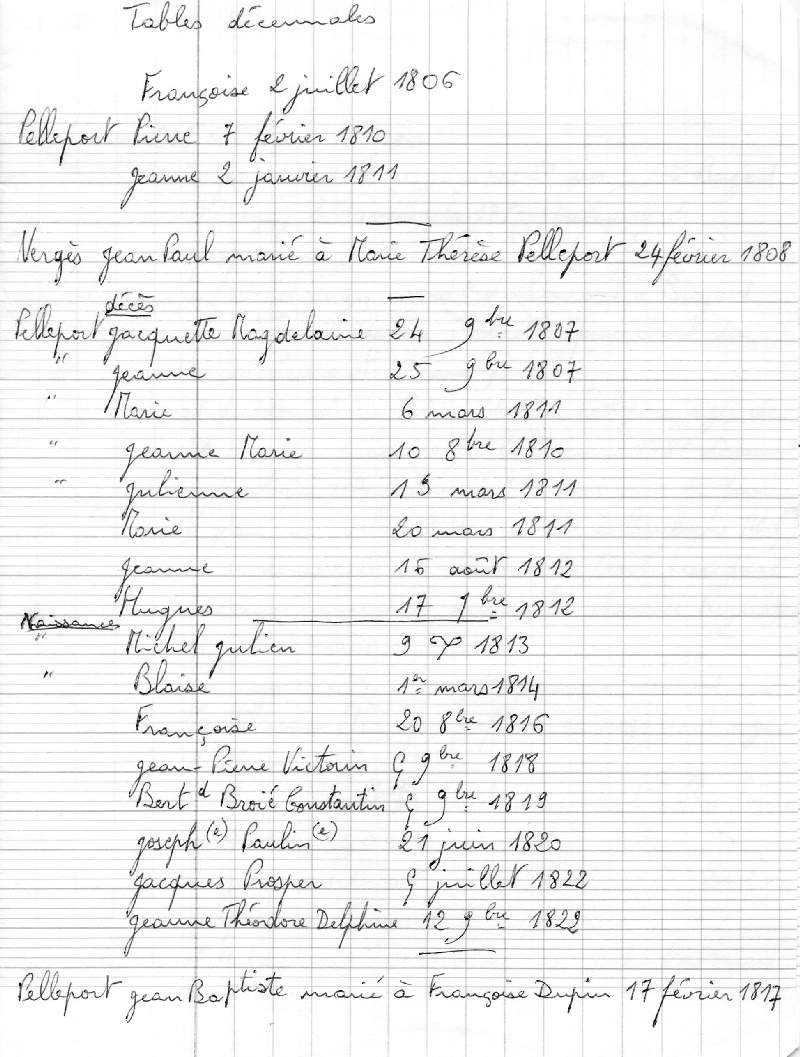 Tables décennales
Françoise 2 juillet 1806
Pelleport Pierre 7 février 1810
Jeanne 2 janvier 1811
Vergès Jean Paul marié à Marie Thérèse Pelleport 24 février 1808
décès
Pelleport Jacquette Magdelaine 24 9bre 1807
" Jeanne 25 9bre 1807
" Marie 6 mars 1811
" Jeanne Marie 10 8bre 1810
" Julienne mars 1811
Marie 20 mars 1811
Jeanne août 1812
Hugues 17 bre 1812
Naissances
" Michel Julien 9 1813
" Blaise 1er mars 1814
Françoise 20 8bre 1816
Jean-Pierre Victorin 9bre 1818
Bertd Broié Constantin 9bre 1819
Joseph(e) Paulin(e) 21 juin 1820
Jacques Prosper juillet 1822
Jeanne Théodore Delphine 12 9bre 1822
Pelleport Jean Baptiste marié à Françoise Dupin 17 février 1817